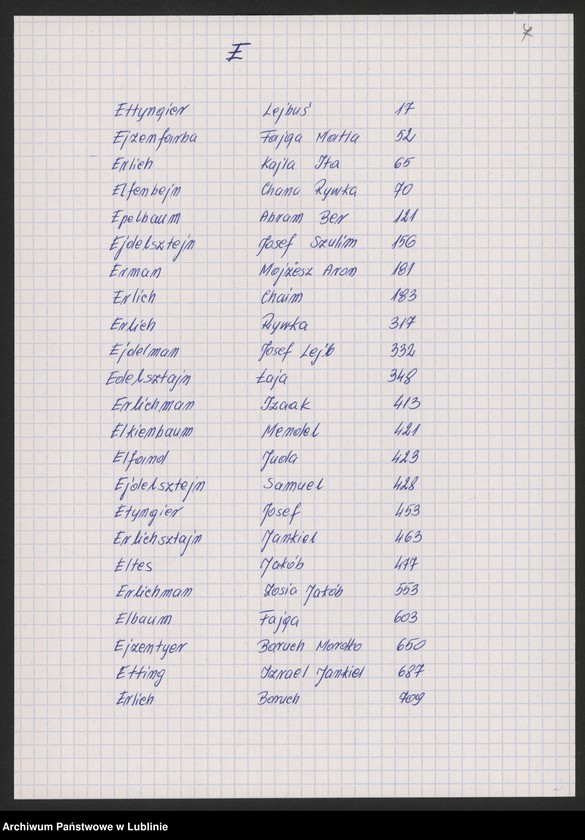 E
Ettyngier Lejbuś 17
Ejzenfarba Fajga Matla 52
Erlich Kajla Ita 65
Elfenbejn Chana Rywka 70
Epelbaum Abram Ber 121
Ejdelsztejn Josef Szulim 156
Erman Mojżesz Aron 181
Erlich Chaim 183
Erlich Rywka 317
Ejdelman Josef Lejb 332
Edelsztajn Łaja 348
Erlichman Izaak 413
Elkienbaum Mendel 421
Elfand Juda 423
Ejdelsztejn Samuel 428
Etyngier Josef 453
Erlichsztajn Jankiel 463
Eltes Jakób 477
Erlichman Zosia Jakób 553
Elbaum Fajga 603
Ejzentyer Boruch Mordko 650
Etting Izrael Jankiel 687
Erlich Boruch 709
Archiwum Państwowe w Lublinie